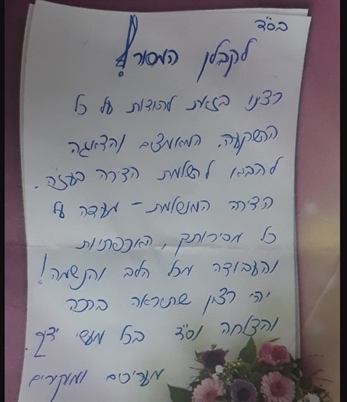 בס"ד
לקבלן המסור!
רצינו בזאת להודות על כל
ההשקעה, המאמצים והדאגה
להביא להשלמת הדירה בעז"ה.
הדירה המושלמת - מעידה על
כל מסירותך, האכפתיות
והעבודה מכל הלב והנשמה!
יהי רצון שתיראה ברכה
והצלחה וס"ד בכל מעשי ידיך.
מעריכים ומוקירים